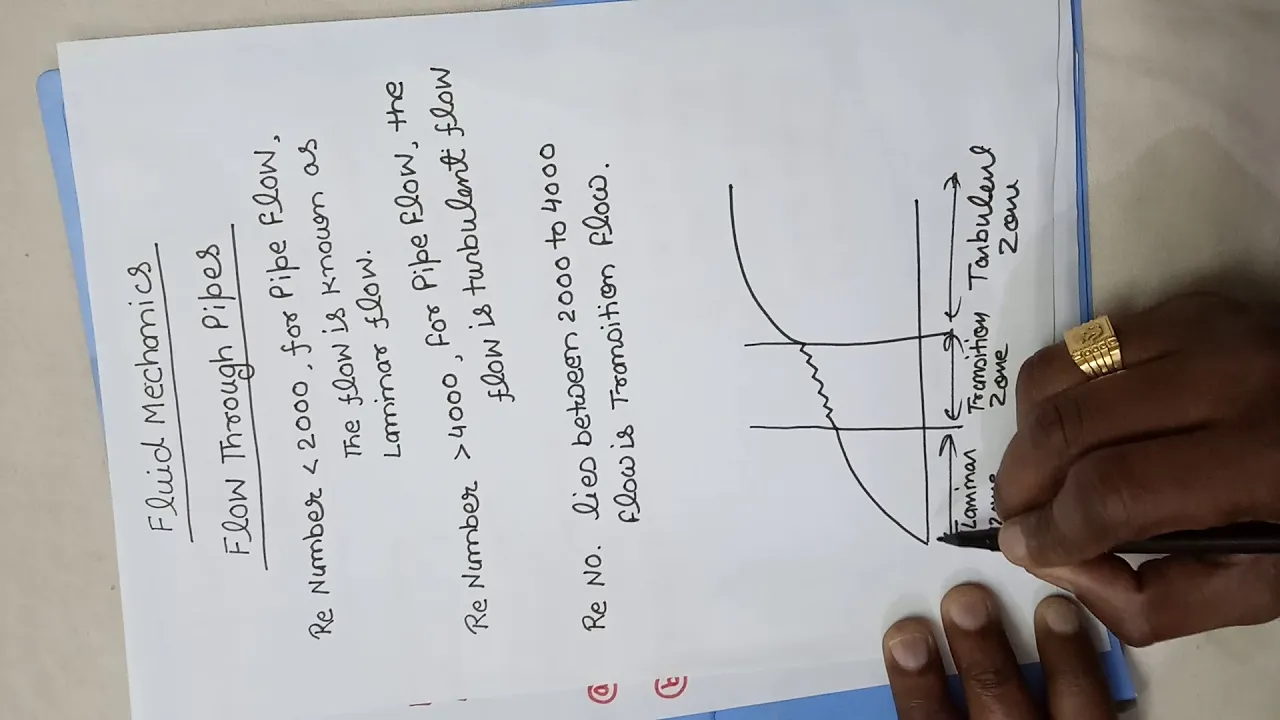 Fluid Mechanics
Flow Through Pipes
Re Number < 2000, for Pipe Flow,
The flow is known as
Laminar flow.
Re Number > 4000, For Pipe Flow, the
flow is turbulent flow
Re No. lies between 2000 to 4000
flow is Transition flow.
Laminar Transition Turbulent
Zone Zone